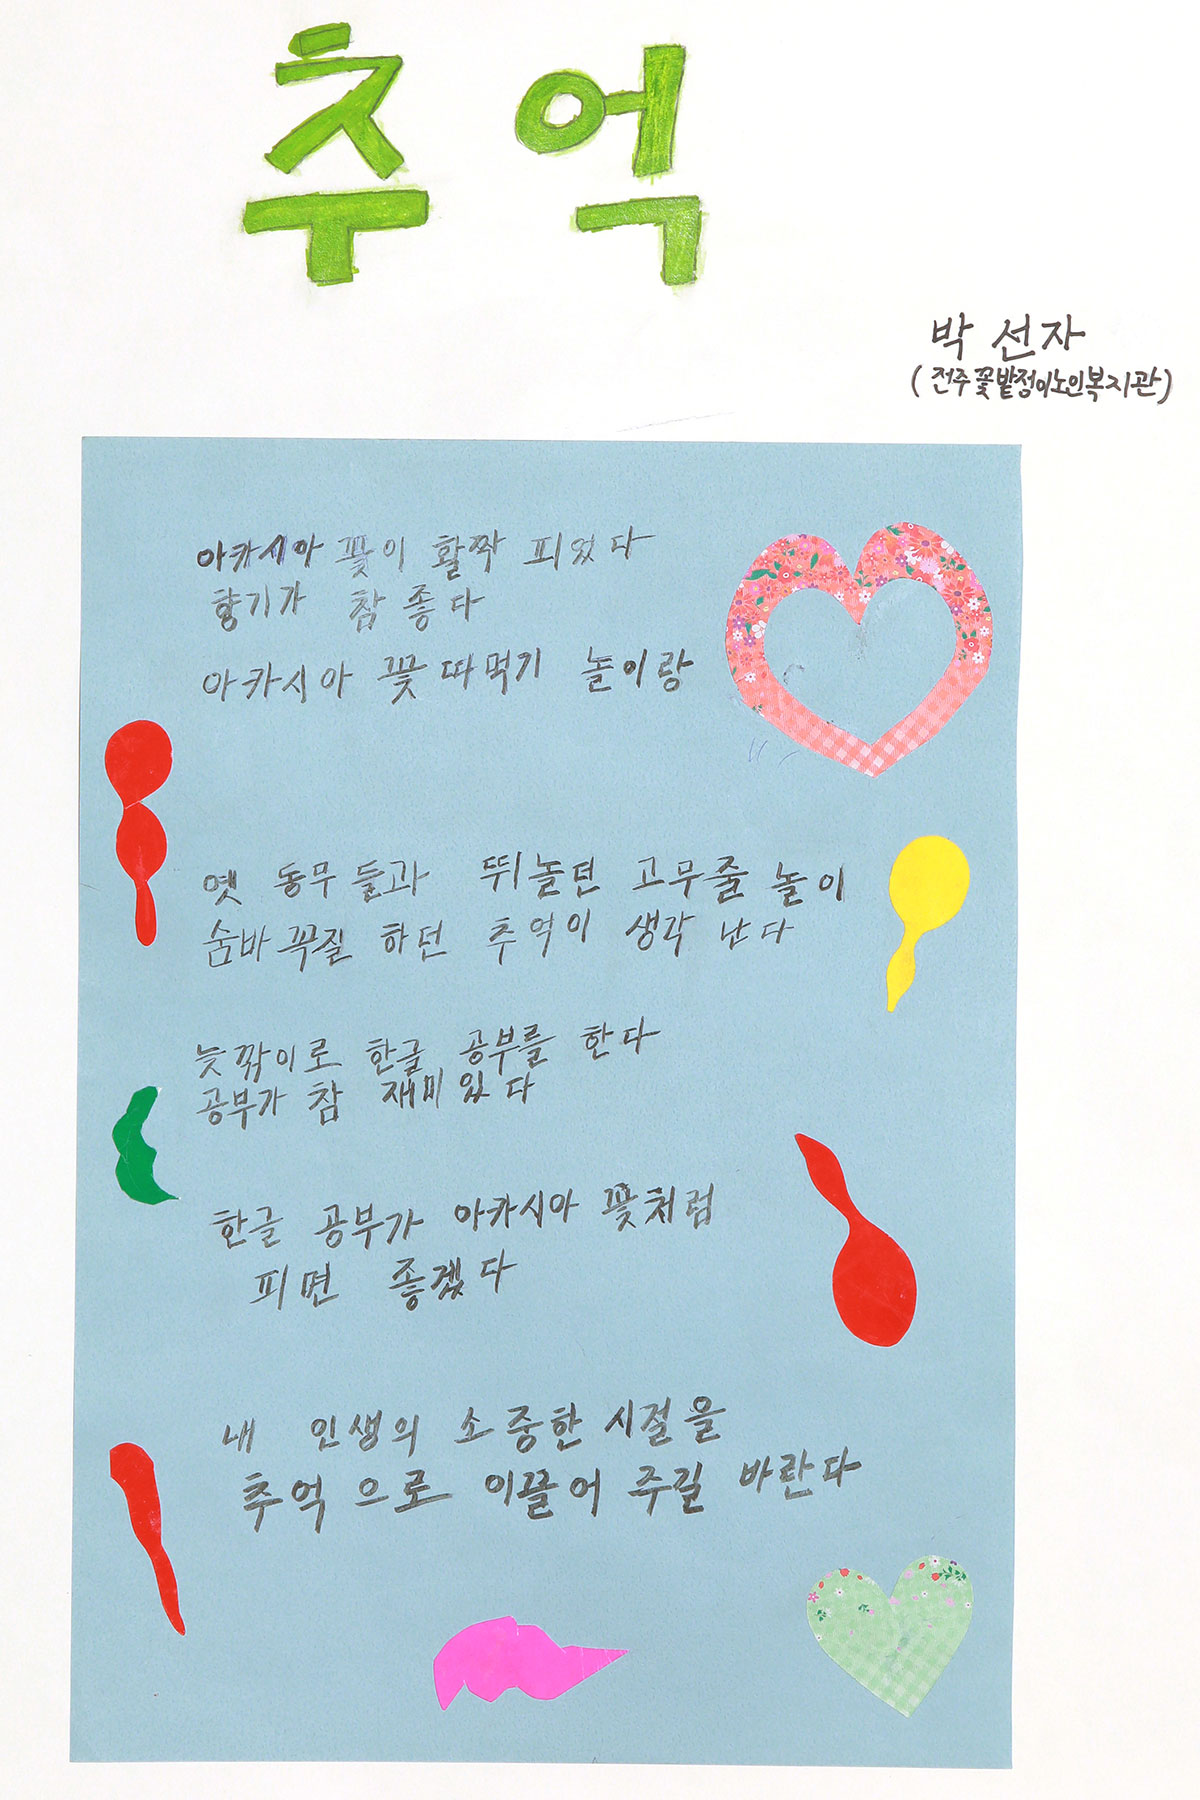 추억
박선자
(전주꽃밭정이노인복지관)
아카시아 꽃이 활짝 피었다
향기가 참 좋다
아카시아 꽃 따먹기 놀이랑
옛 동무들과 뛰놀던 고무줄 놀이
숨바꾸질 하던 추억이 생각 난다
늦깎이로 한글 공부를 한다
공부가 참 재미있다
한글 공부가 아카시아 꽃처럼
피면 좋겠다
내 인생의 소중한 시절을
추억으로 이끌어 주길 바란다